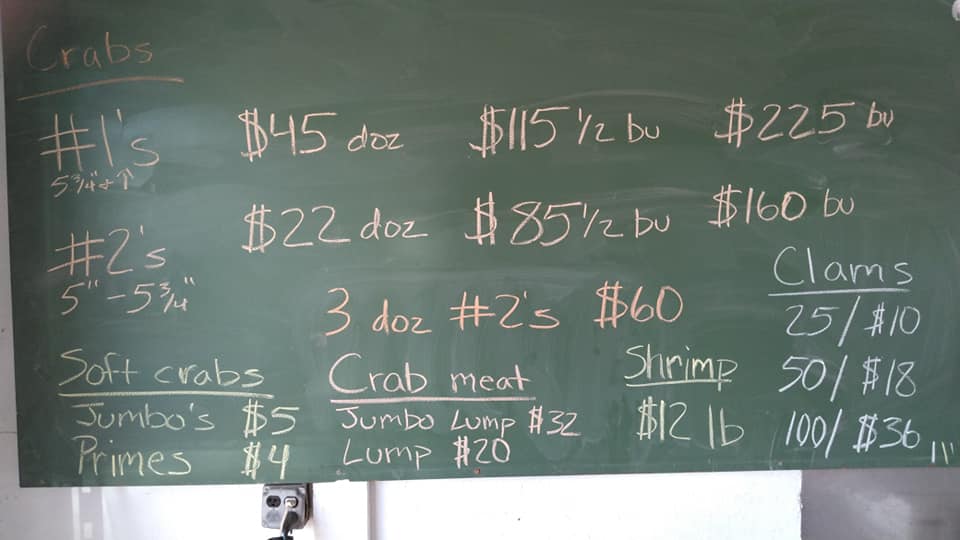 Crabs
#1's $45 doz $115 1/2 bu $225 bu
5 3/4" + ↑
#2's $22 doz $85 1/2 bu $160 bu
5" - 5 3/4"
3 doz #2's $60
Clams
25/ $10
50/ $18
100/ $36
Soft crabs
Jumbo's $5
Primes $4
Crab meat
Jumbo Lump $32
Lump $20
Shrimp
$12 lb